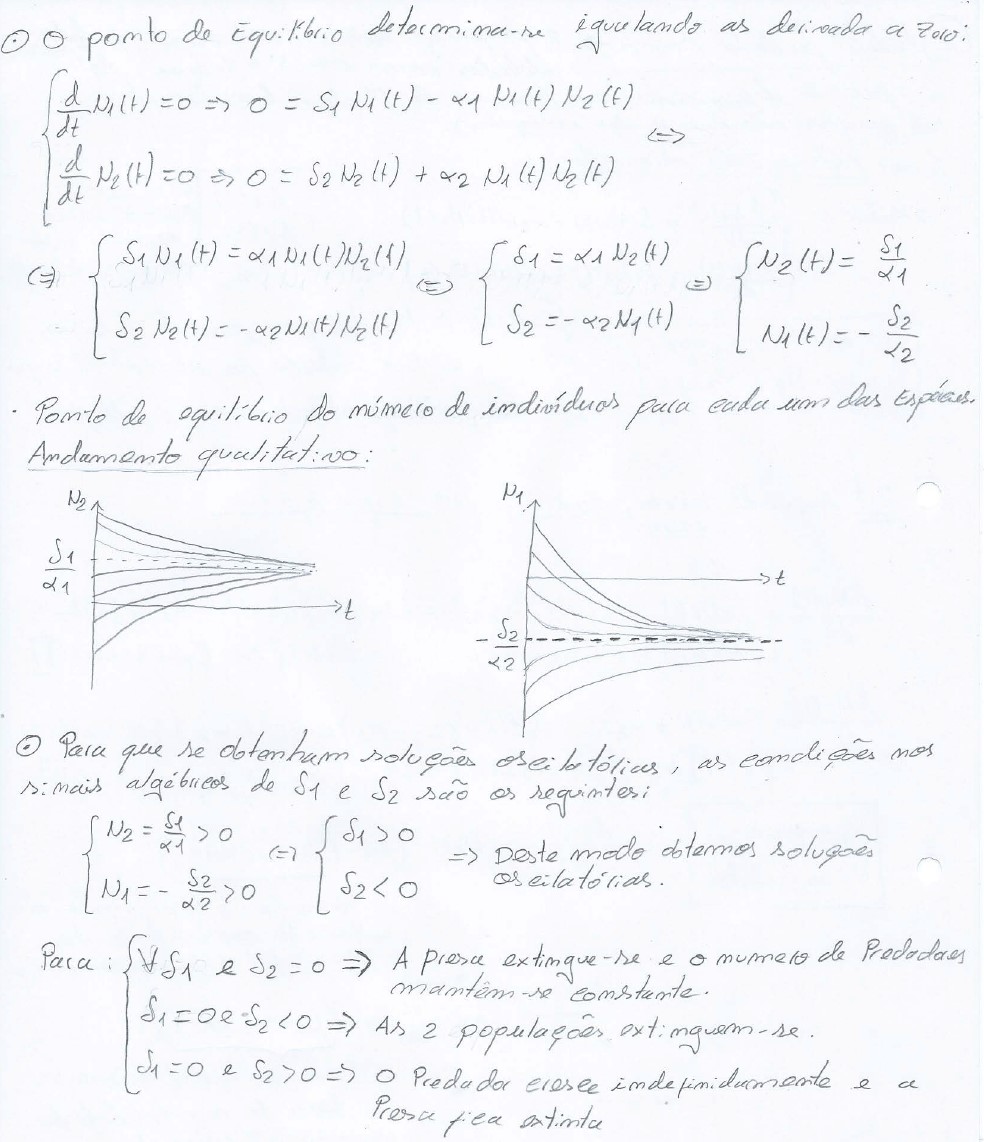 ⊙ O ponto de Equilíbrio determina-se igualando as derivada a Zero:
{ d/dt N1(t) = 0 => 0 = δ1 N1(t) - α1 N1(t) N2(t)
<=>
{ d/dt N2(t) = 0 => 0 = δ2 N2(t) + α2 N1(t) N2(t)
(=) { δ1 N1(t) = α1 N1(t) N2(t) (=) { δ1 = α1 N2(t) (=) { N2(t) = δ1/α1
δ2 N2(t) = -α2 N1(t) N2(t) δ2 = -α2 N1(t) N1(t) = - δ2/α2
· Ponto de equilíbrio do número de indivíduos para cada um das Espécies.
Andamento qualitativo:
N2 N1
δ1/α1 t t
- δ2/α2
⊙ Para que se obtenham soluções oscilatórias, as condições nos
sinais algébricos de δ1 e δ2 são os seguintes:
{ N2 = δ1/α1 > 0 (=) { δ1 > 0 => Deste modo obtemos soluções
N1 = - δ2/α2 > 0 δ2 < 0 oscilatórias.
Para: { ∀ δ1 e δ2 = 0 => A presa extingue-se e o numero de Predadores
mantêm-se constante.
δ1 = 0 e δ2 < 0 => As 2 populações extinguem-se.
δ1 = 0 e δ2 > 0 => O Predador cresce indefinidamente e a
Presa fica extinta